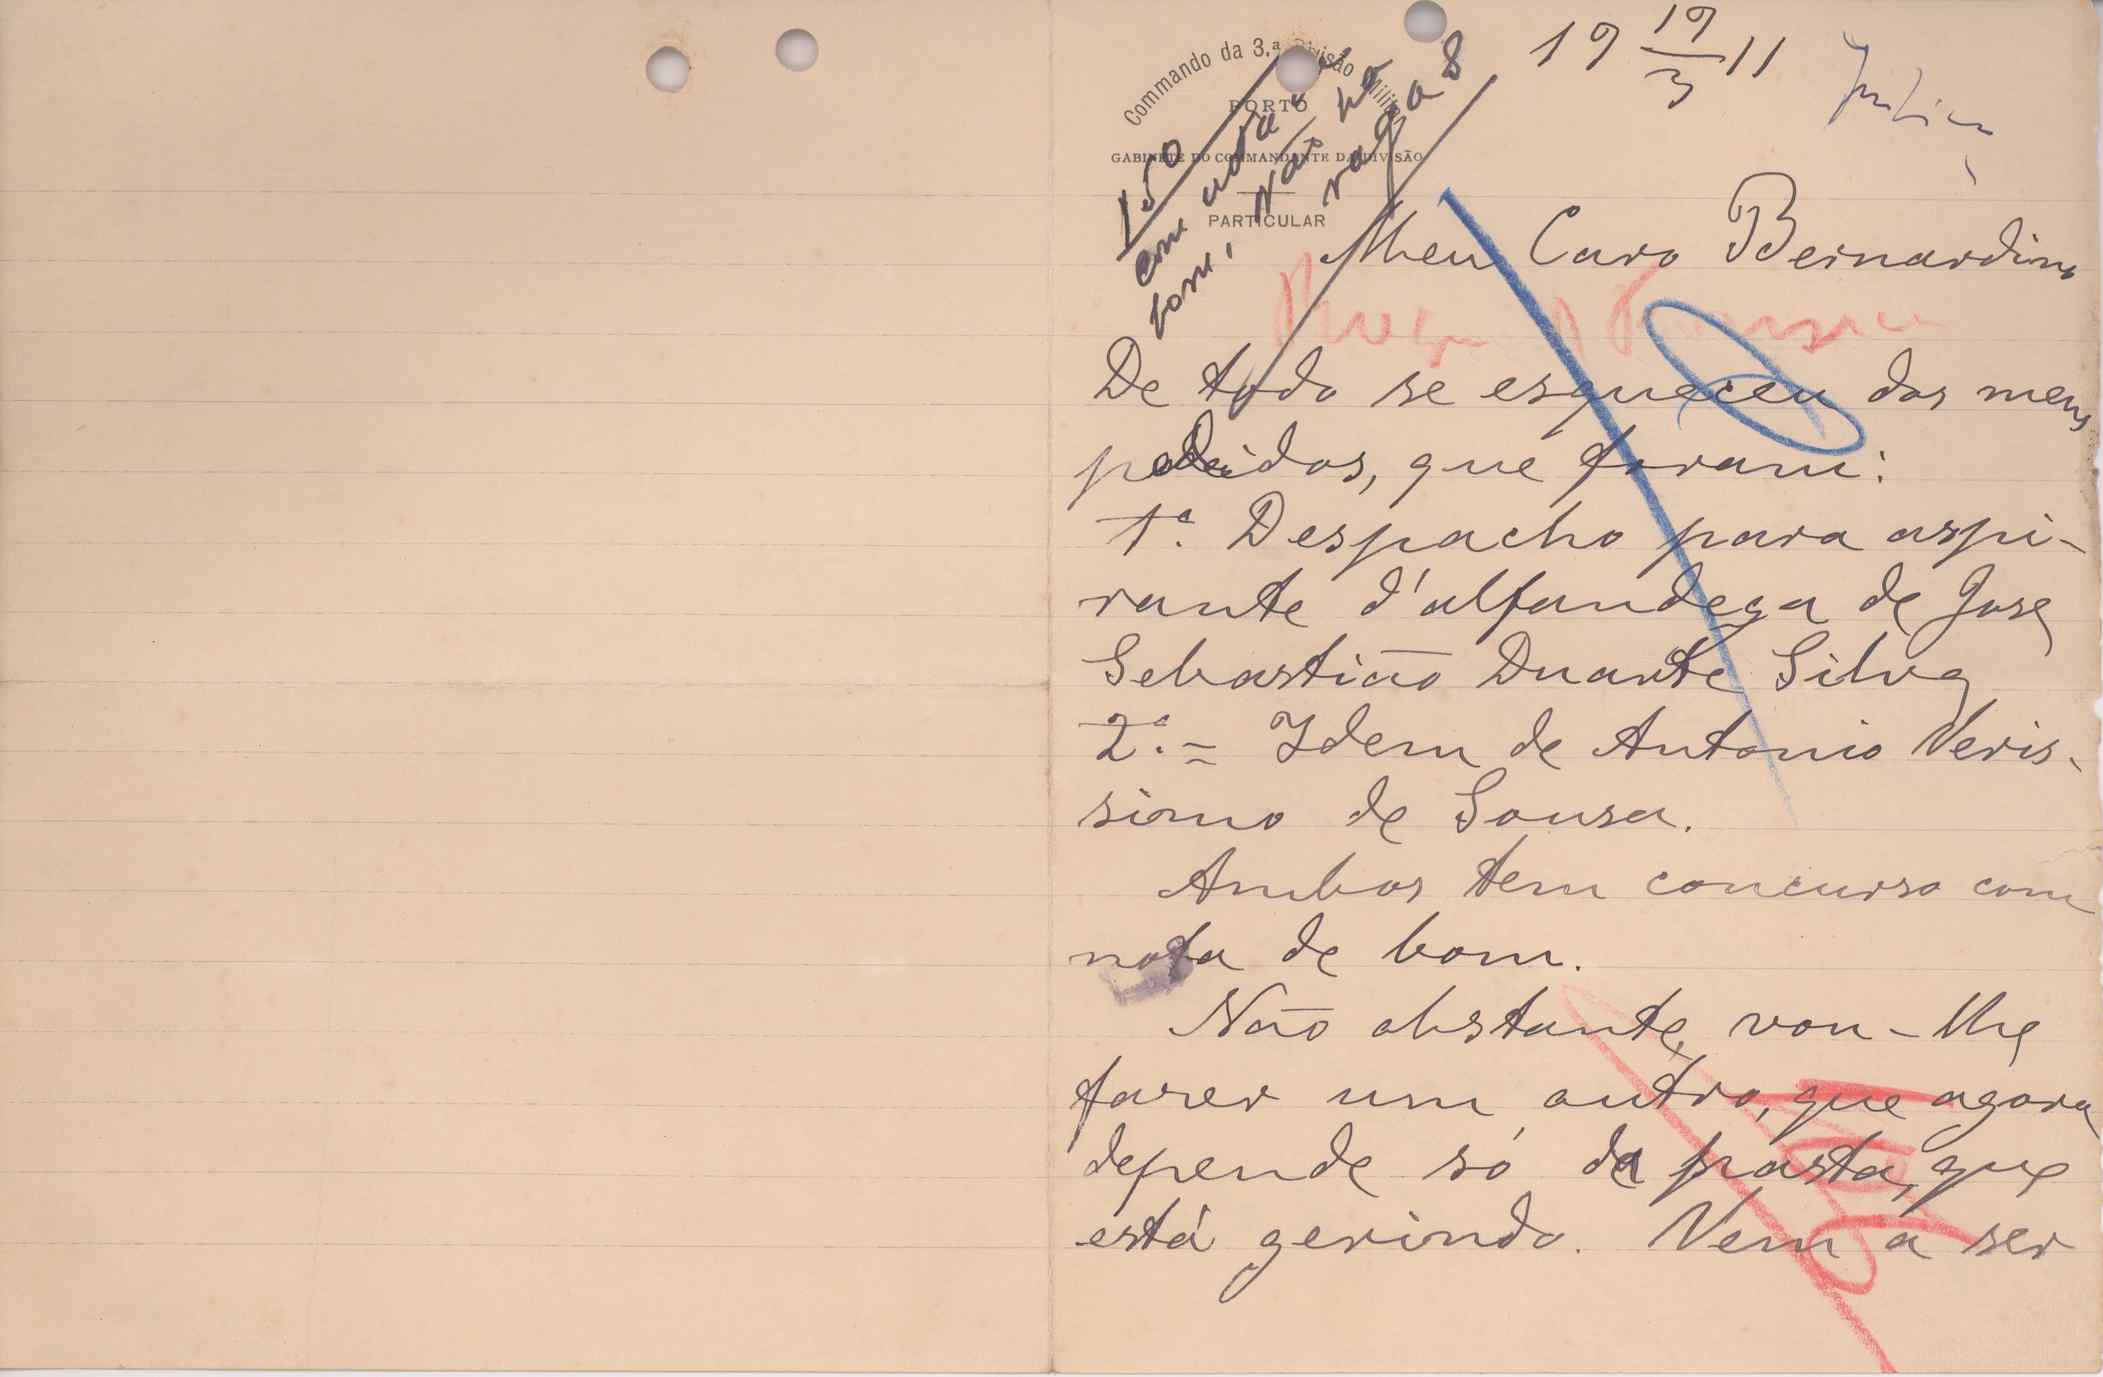 Commando da 3.ª Divisão Militar
PORTO
GABINETE DO COMMANDANTE DA DIVISÃO
PARTICULAR
19 19/3 11
150
com nota de
bom,
Não ha
vagas
Meu Caro Bernardino
De todo se esqueceu dos meus
pedidos, que foram:
1º. Despacho para aspi-
rante d'alfandega de José
Sebastião Duarte Silva
2º. = Idem de Antonio Veris-
simo de Sousa.
Ambos tem concurso com
nota de bom.
Não obstante, vou-lhe
fazer um outro, que agora
depende só da pasta, que
está gerindo. Vem a ser